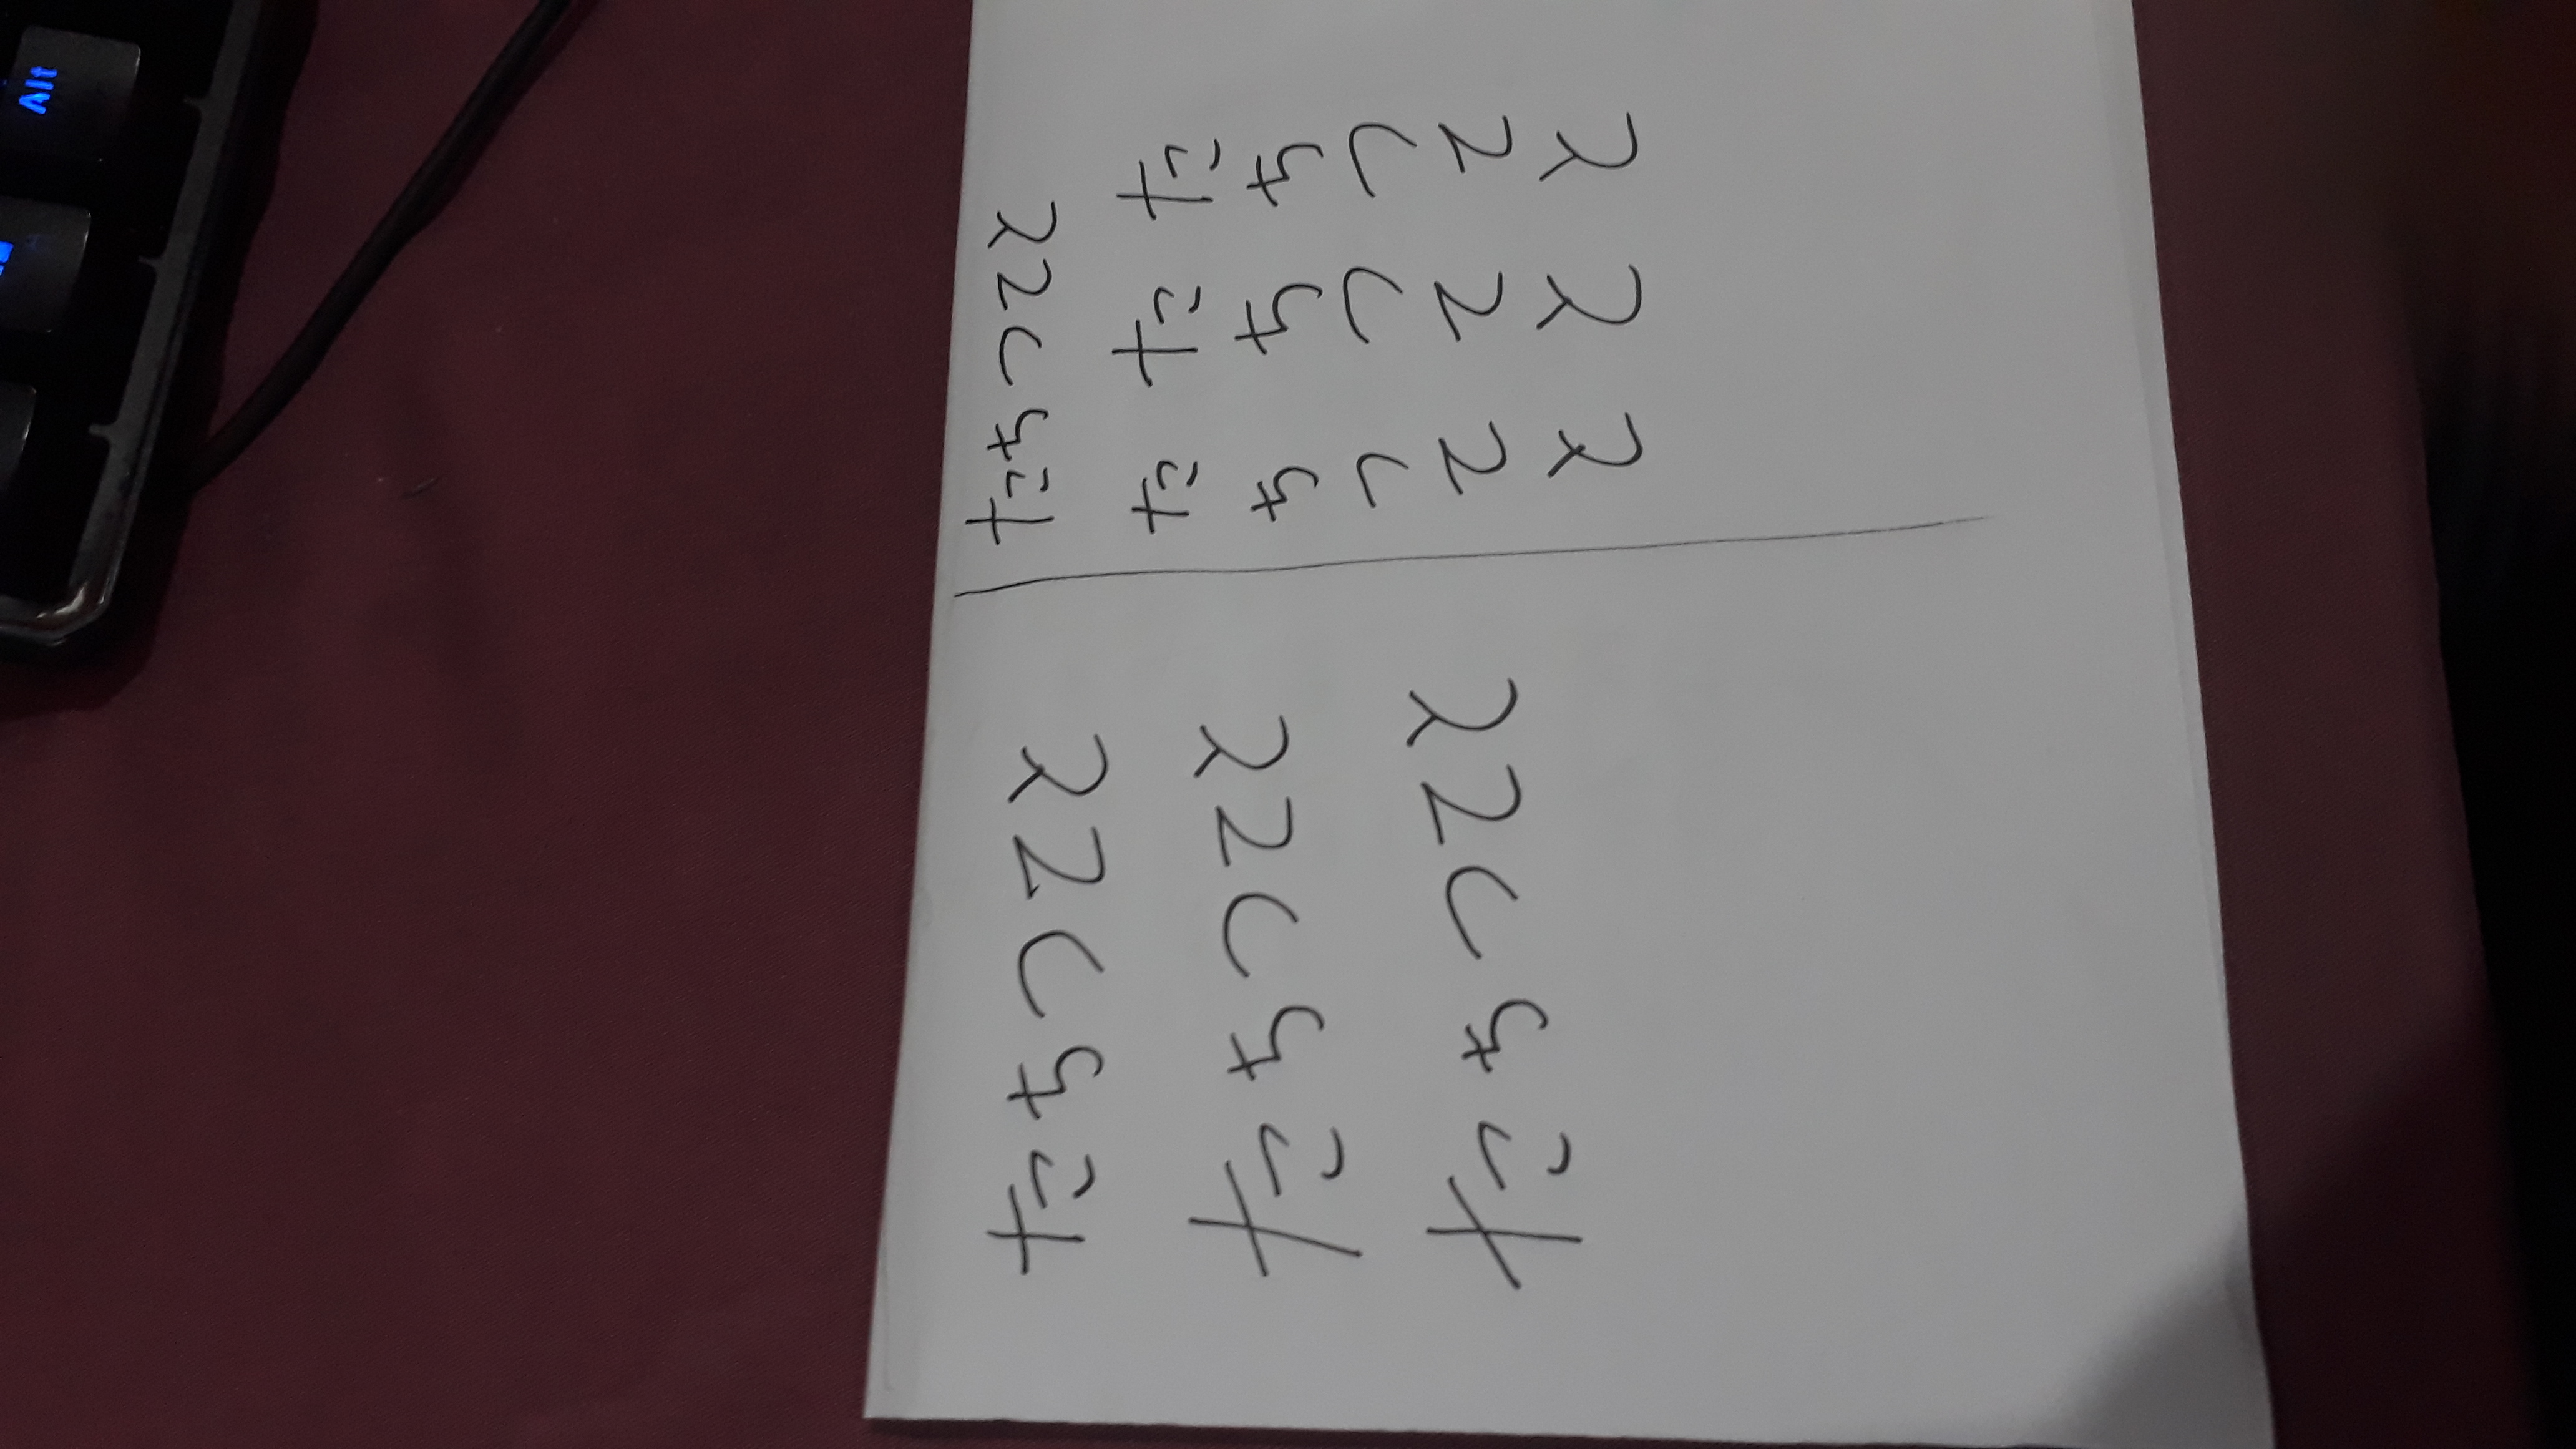 Alt
たちつてと
たちつてと
たちつてと
たちつてと
た た た
ち ち ち
つ つ つ
て て て
と と と